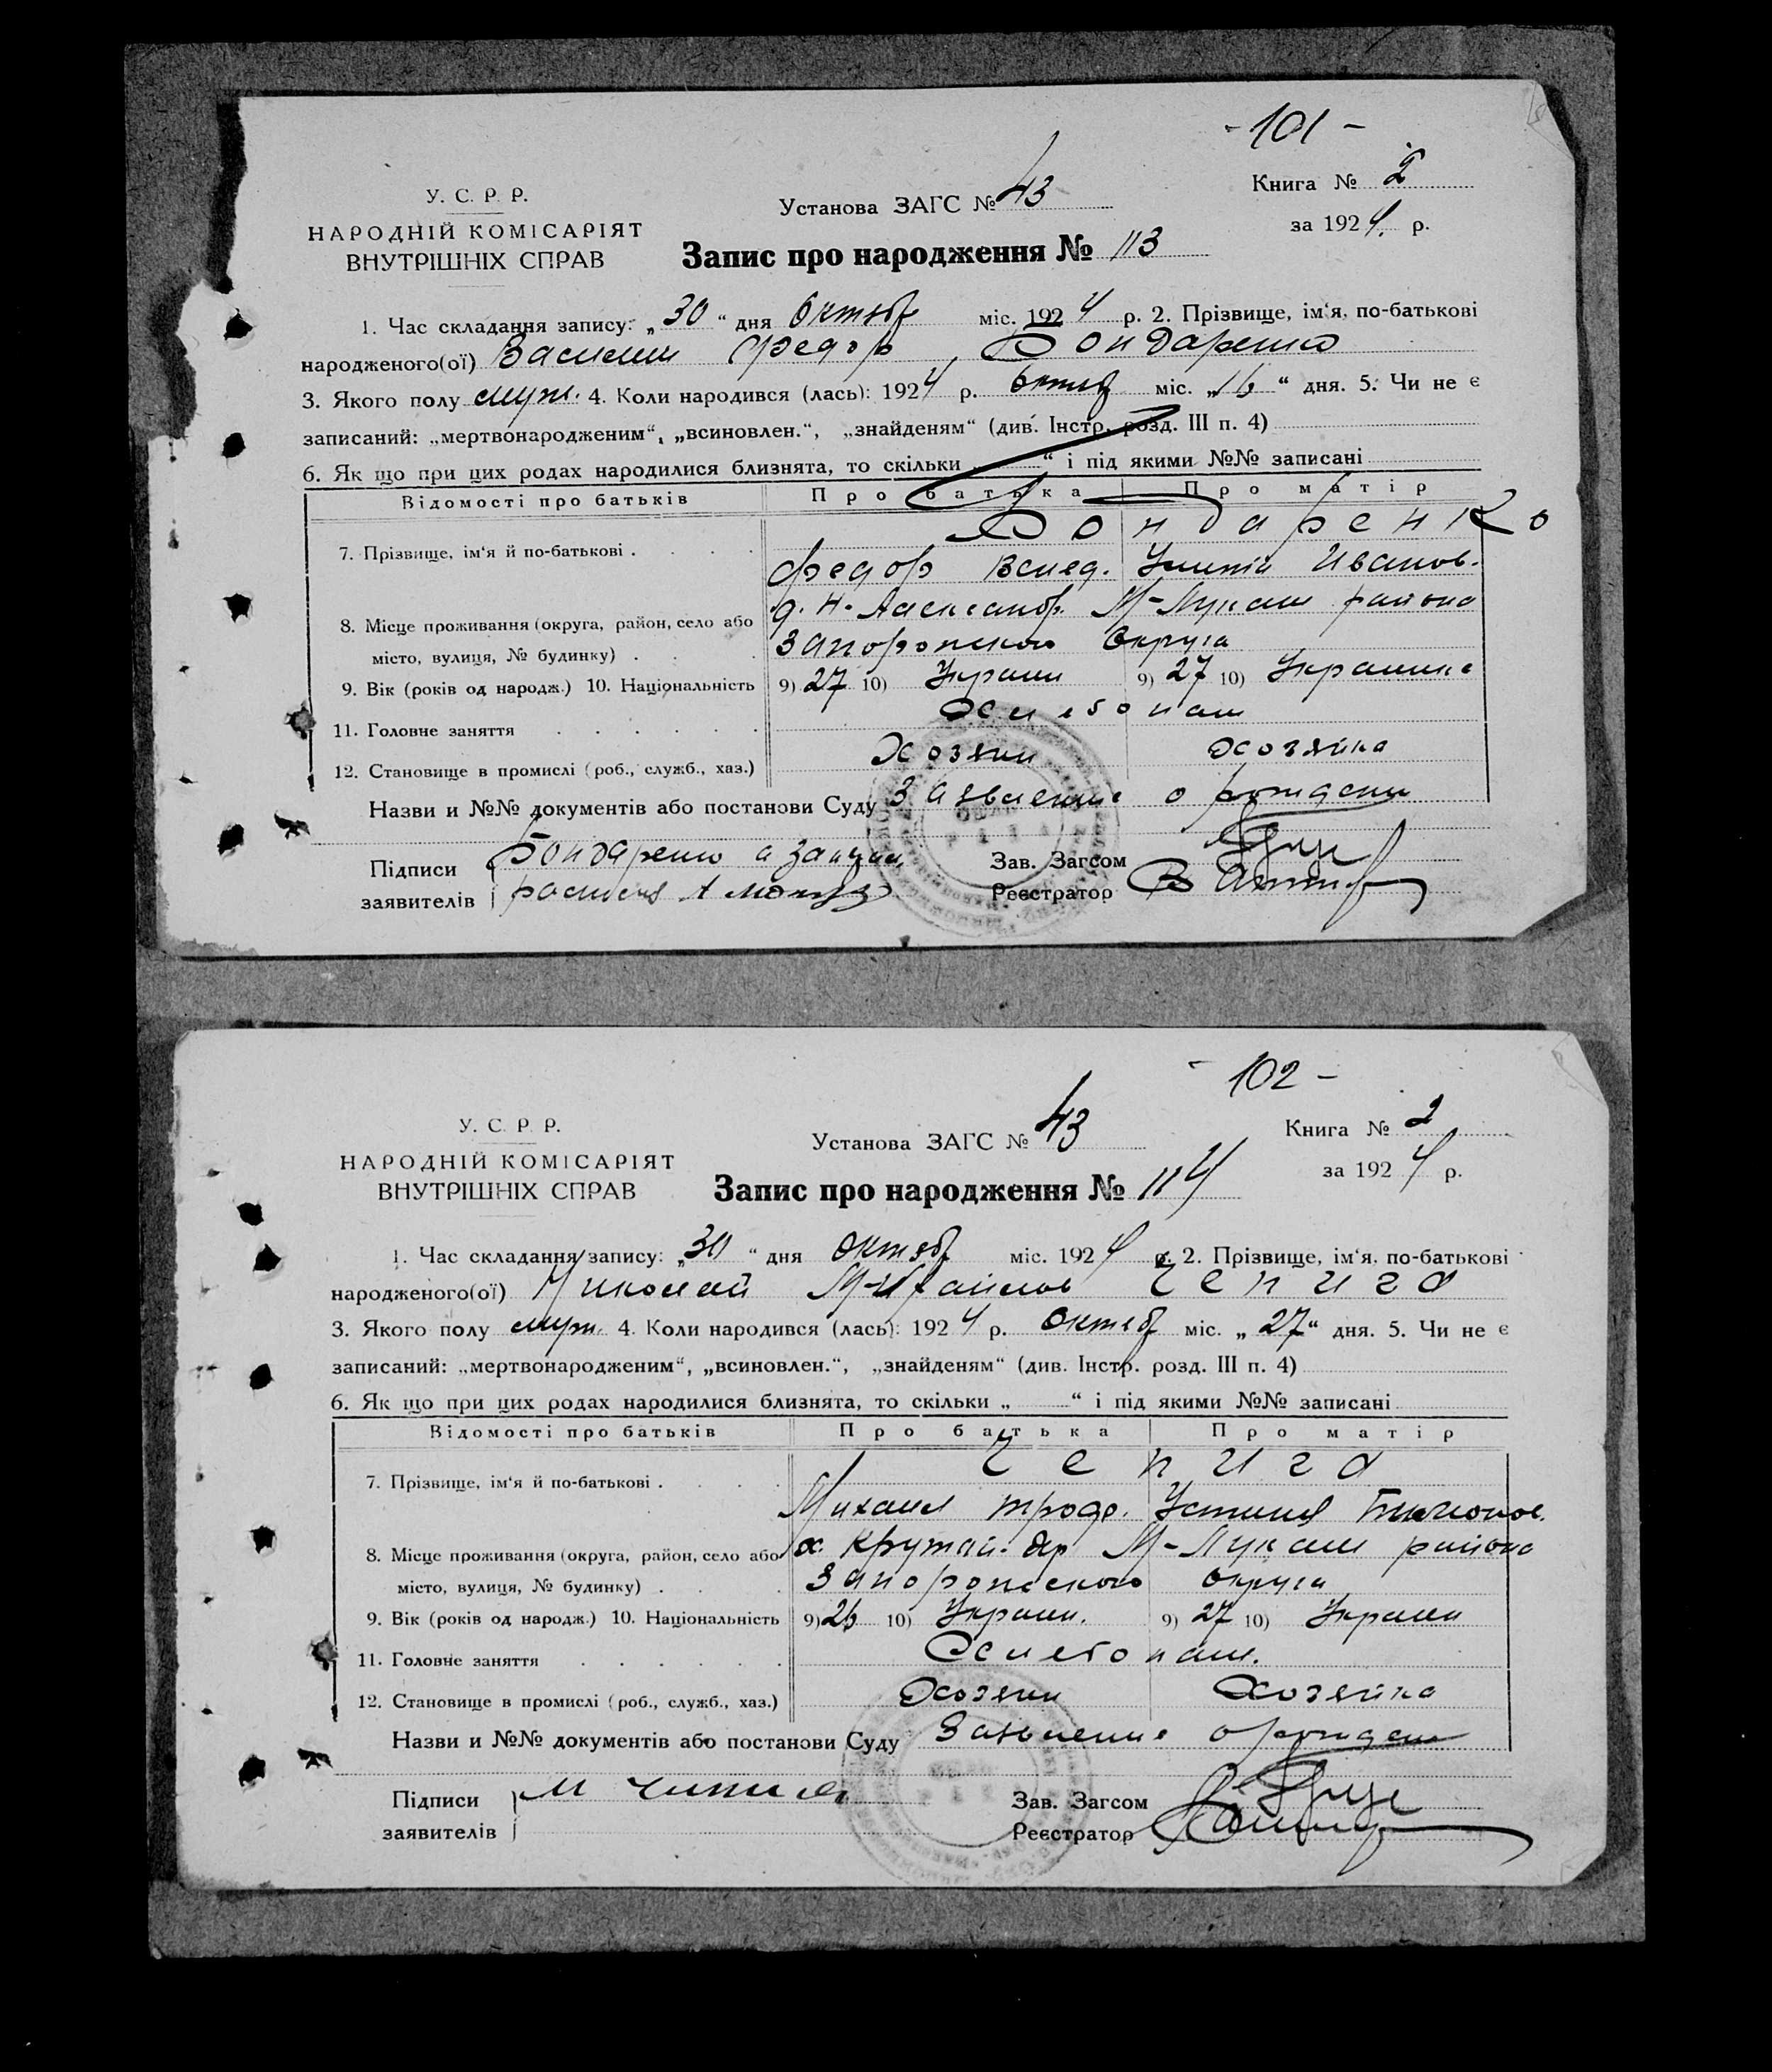 - 101 -
У. С. Р. Р.
Установа ЗАГС № 43
Книга № 2
НАРОДНІЙ КОМІСАРІЯТ
ВНУТРІШНІХ СПРАВ
за 1924 р.
Запис про народження № 113
1. Час складання запису: „30“ дня Октябр міс. 1924 р. 2. Прізвище, ім‘я, по-батькові
народженого(ої) Василий Федор Бондаренко
3. Якого полу муж. 4. Коли народився (лась): 1924 р. Октяб міс. „16“ дня. 5. Чи не є
записаний: „мертвонародженим“, „всиновлен.“, „знайденям“ (див. Інстр. розд. III п. 4)
6. Як що при цих родах народилися близнята, то скільки “ і під якими №№ записані
Відомості про батьків Про батька Про матір
Бондаренко
7. Прізвище, ім‘я й по-батькові .
Федор Иванов.
Н. Александр. М-Лукаш района
8. Місце проживання (округа, район, село або
місто, вулиця, № будинку) .
Запорожского Округа
9. Вік (років од народж.) 10. Національність 9) 27 10) Украин 9) 27 10) Украинка
11. Головне заняття Хлебопаш
12. Становище в промислі (роб., служб., хаз.) Хозяин Хозяйка
Назви и №№ документів або постанови Суду Заявление о рожден
Підписи Бондаренко а за
заявителів
Зав. Загсом
Реєстратор
- 102 -
У. С. Р. Р.
Установа ЗАГС № 43
Книга № 2
НАРОДНІЙ КОМІСАРІЯТ
ВНУТРІШНІХ СПРАВ
за 1924 р.
Запис про народження № 114
1. Час складання запису: „30“ дня Октябр міс. 1924 р. 2. Прізвище, ім‘я, по-батькові
народженого(ої) Николай Михайлов Чепига
3. Якого полу муж. 4. Коли народився (лась): 1924 р. Октябр міс. „27“ дня. 5. Чи не є
записаний: „мертвонародженим“, „всиновлен.“, „знайденям“ (див. Інстр. розд. III п. 4)
6. Як що при цих родах народилися близнята, то скільки „ “ і під якими №№ записані
Відомості про батьків Про батька Про матір
Чепига
7. Прізвище, ім‘я й по-батькові .
Михаил Троф. Устиния
8. Місце проживання (округа, район, село або х. Крутой Яр М-Лукаш района
місто, вулиця, № будинку) . Запорожского округа
9. Вік (років од народж.) 10. Національність 9) 26 10) Украин. 9) 27 10) Украин
11. Головне заняття Хлебопаш.
12. Становище в промислі (роб., служб., хаз.) Хозяин Хозяйка
Назви и №№ документів або постанови Суду Заявление о рожден
Підписи М
заявителів
Зав. Загсом
Реєстратор